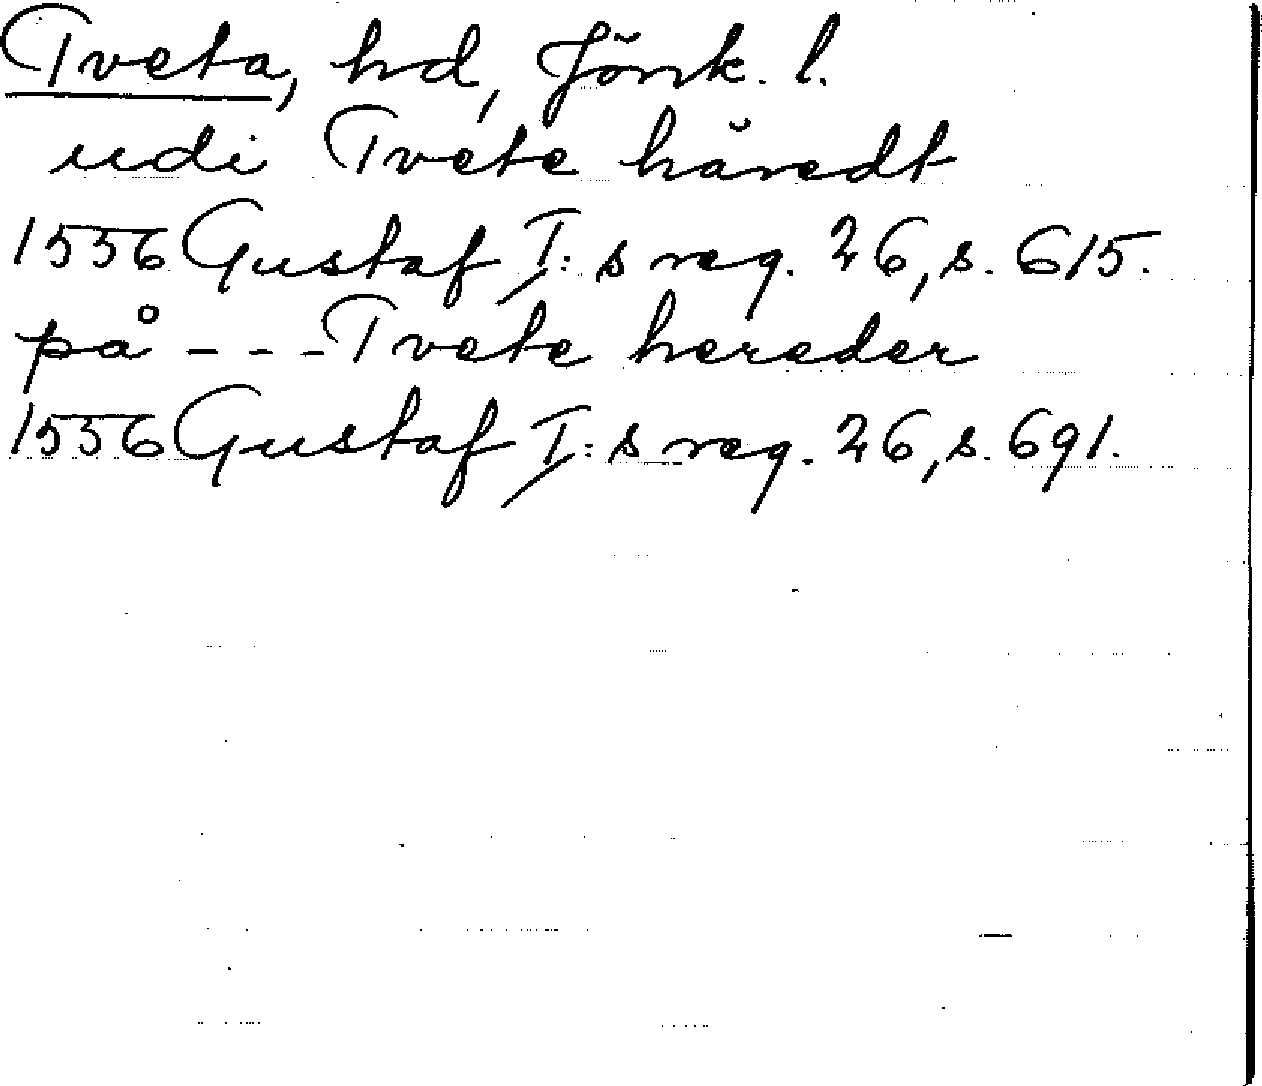 Tveta, hd, Jönk. l.
udi Tvete häredt
1556 Gustaf I:s reg. 26, s. 615.
på - - - Tvete hereder
1556 Gustaf I:s reg. 26, s. 691.